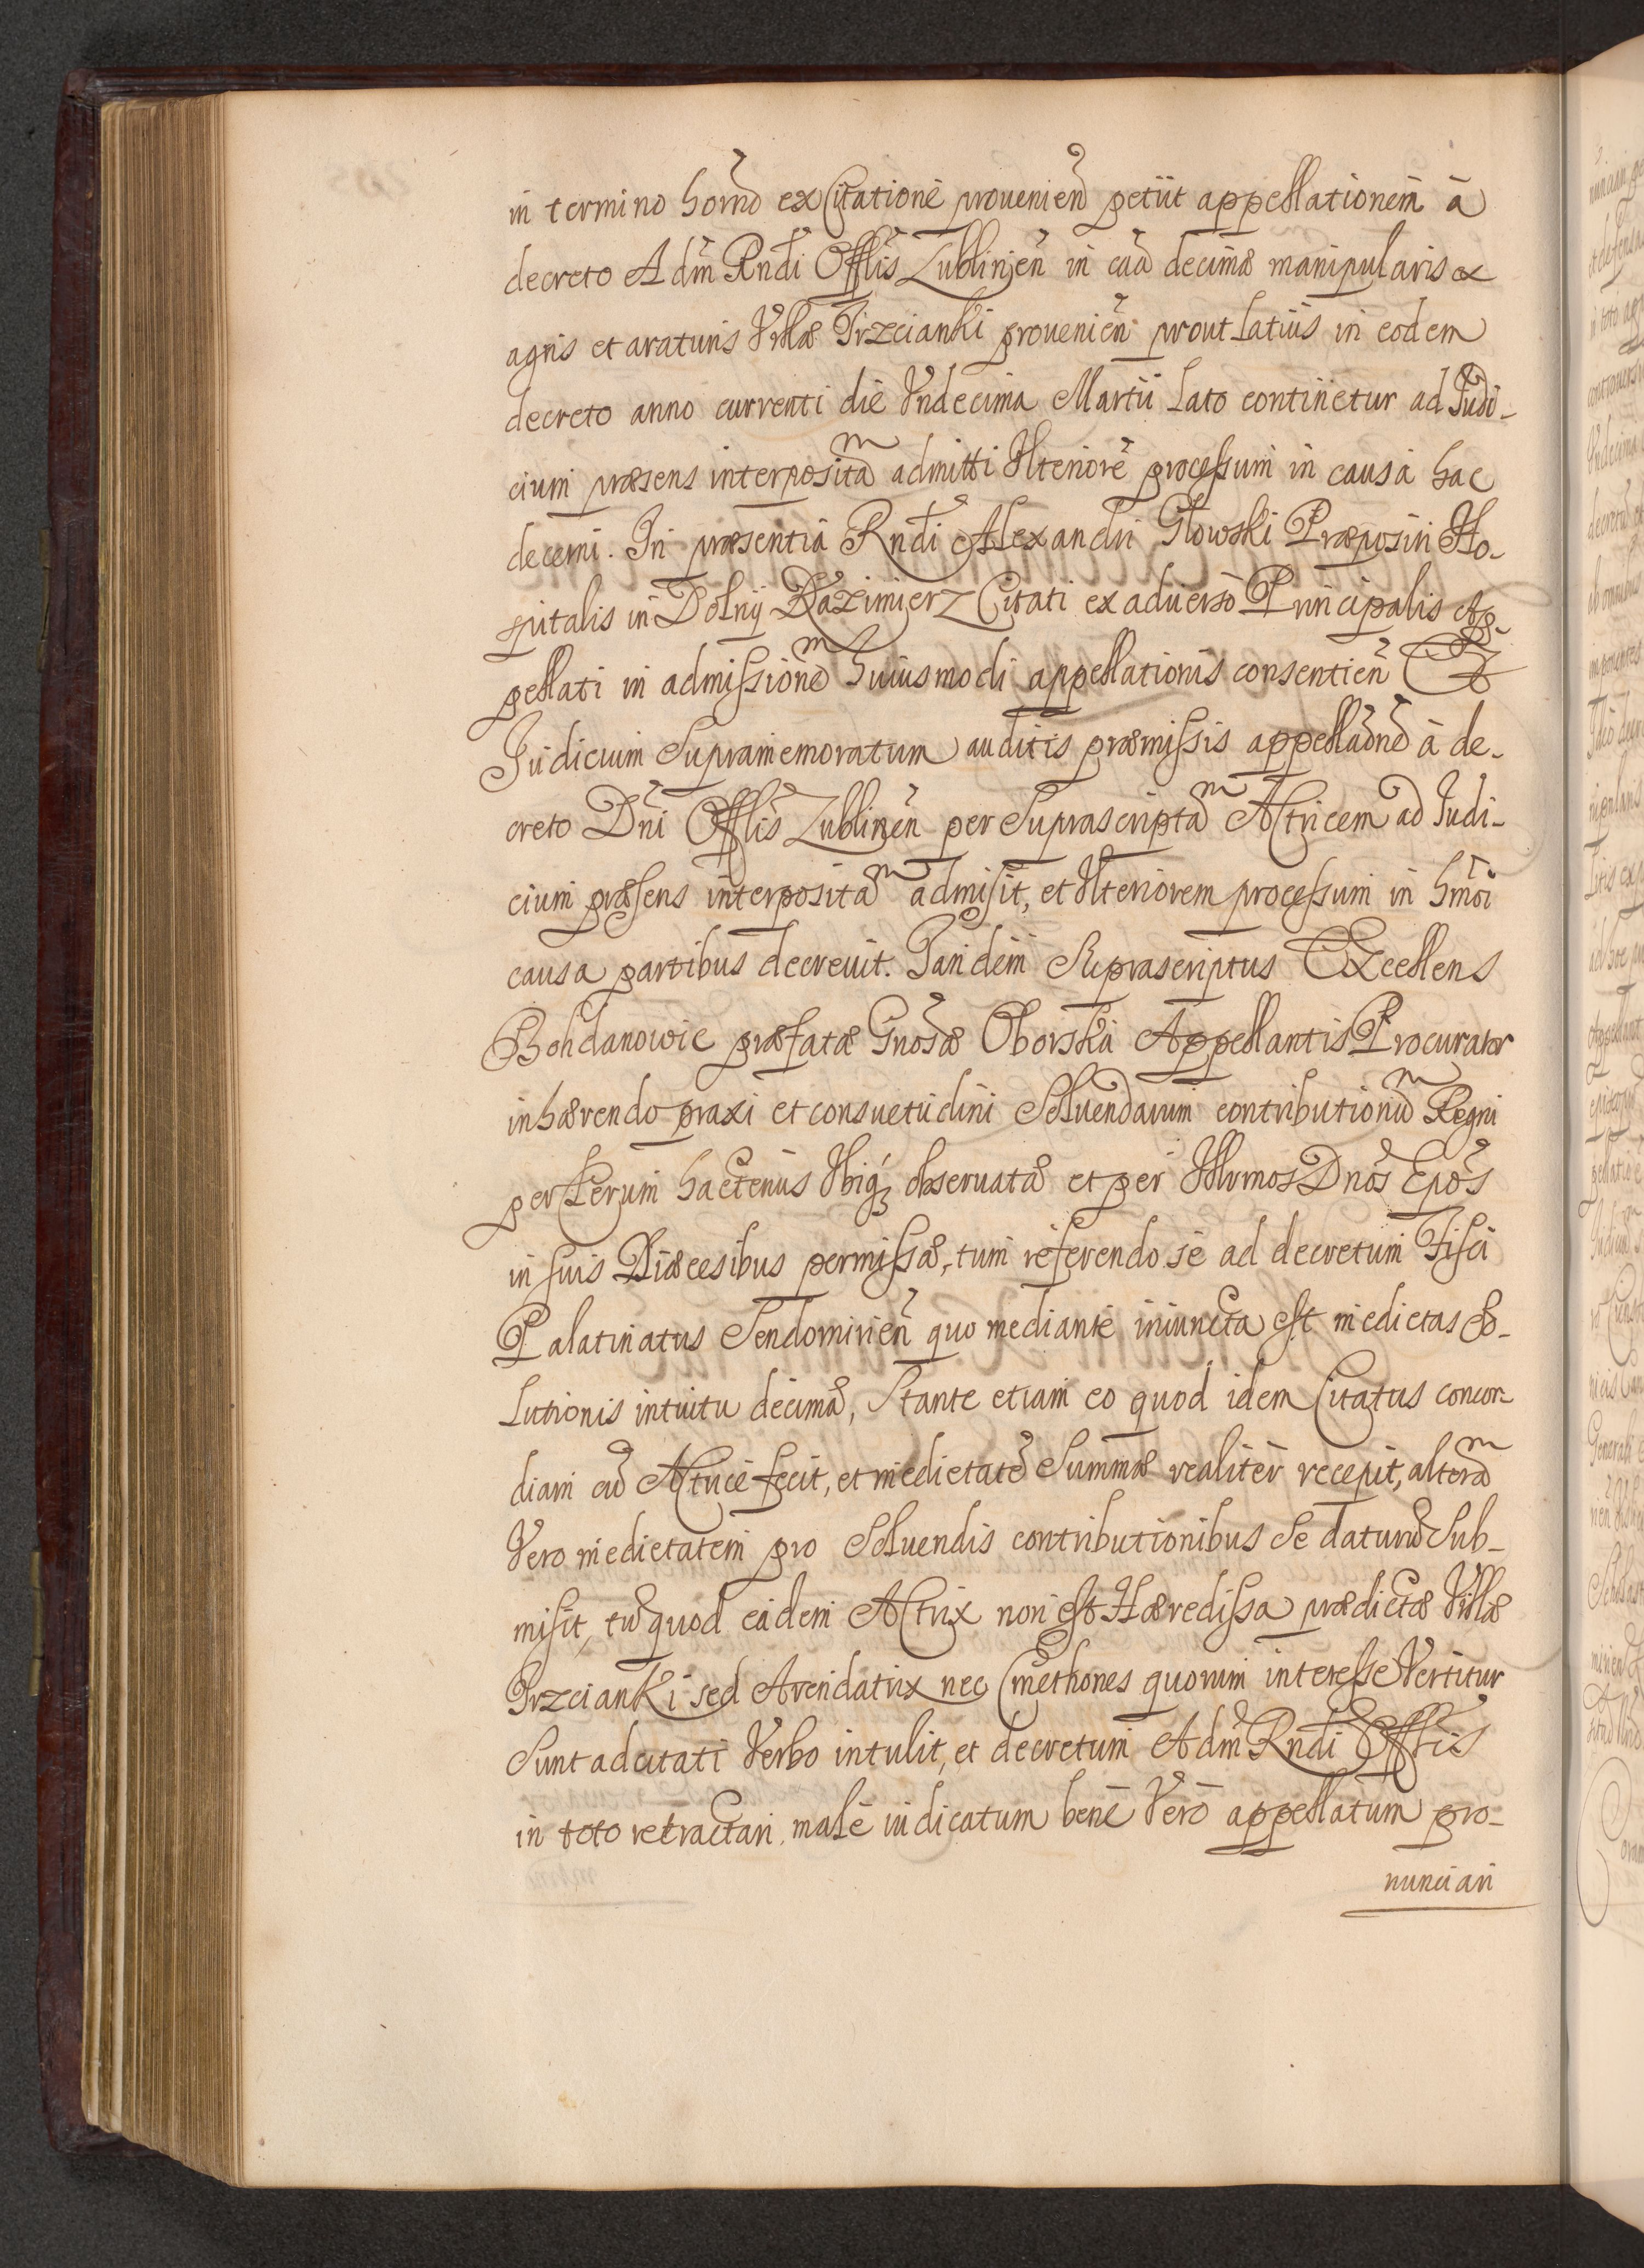 in termino horno ex Citatione prouenien petiit appellationem à
decreto Adm Rndi Offlis Lublinen in caa decimæ manipularis ex
agris et araturis Villæ Trzcianki prouenien prout latius in eodem
decreto anno currenti die Vndecima Martii lato continetur ad Judi-
cium præsens interpositam admitti Vlteriore processum in causa hac
decerni. In præsentia Rndi Alexandri Głowski Præpositi Ho-
spitalis in Dolny Kazimierz Citati ex aduerso Principalis Ap-
pellati in admissionem huiusmodi appellationis consentien Et
Judicium Supramemoratum auditis præmissis appellaone à de-
creto Dni Offlis Lublinen per Suprascriptam Actricem ad Judi-
cium præsens interpositam admisit, et Vlteriorem processum in hmoi
causa partibus decreuit. Tandem Suprascriptus Excellens
Bohdanowic præfatæ Gnosæ Oborska Appellantis Procurator
inhærendo praxi et consuetudini Soluendarum contributionum Regni
per Clerum hactenus Vbiq; obseruatæ et per Illvmos Dnos Epos
in suis Diæcesibus permissæ, tum referendo se ad decretum Fisci
Palatinatus Sendomirien quo mediante iniuncta est medietas So-
lutionis intuitu decimæ, Stante etiam eo quod idem Citatus concor-
diam cu Actrice fecit, et medietate Summæ realiter recepit, alteram
Vero medietatem pro Soluendis contributionibus Se daturu Sub-
misit, tu quod eadem Actrix non est Hæredissa prædictæ Villæ
Trzcianki sed Arendatrix nec Cmethones quorum interesse Vertitur
Sunt adcitati Verbo intulit, et decretum Adm Rndi Offlis
in toto retractari, male iudicatum bene Vero appellatum pro-
nunciari